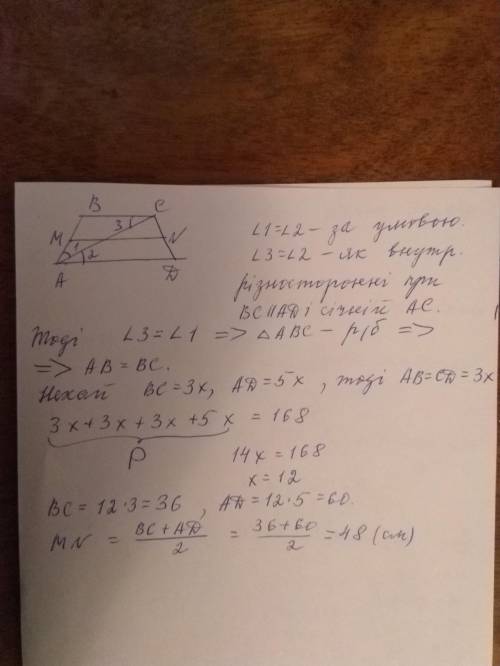 B C
3
M N
1 2
A D
∠1=∠2 – за умовою.
∠3=∠2 – як внутр.
різносторонні при
BC||AD і січній AC.
Тоді ∠3=∠1 => △ABC – р/б =>
=> AB = BC.
Нехай BC=3x, AD=5x, тоді AB=CD=3x
3x+3x+3x+5x = 168
P
14x=168
x=12
BC=12·3=36, AD=12·5=60.
MN = (BC+AD)/2 = (36+60)/2 = 48 (см)